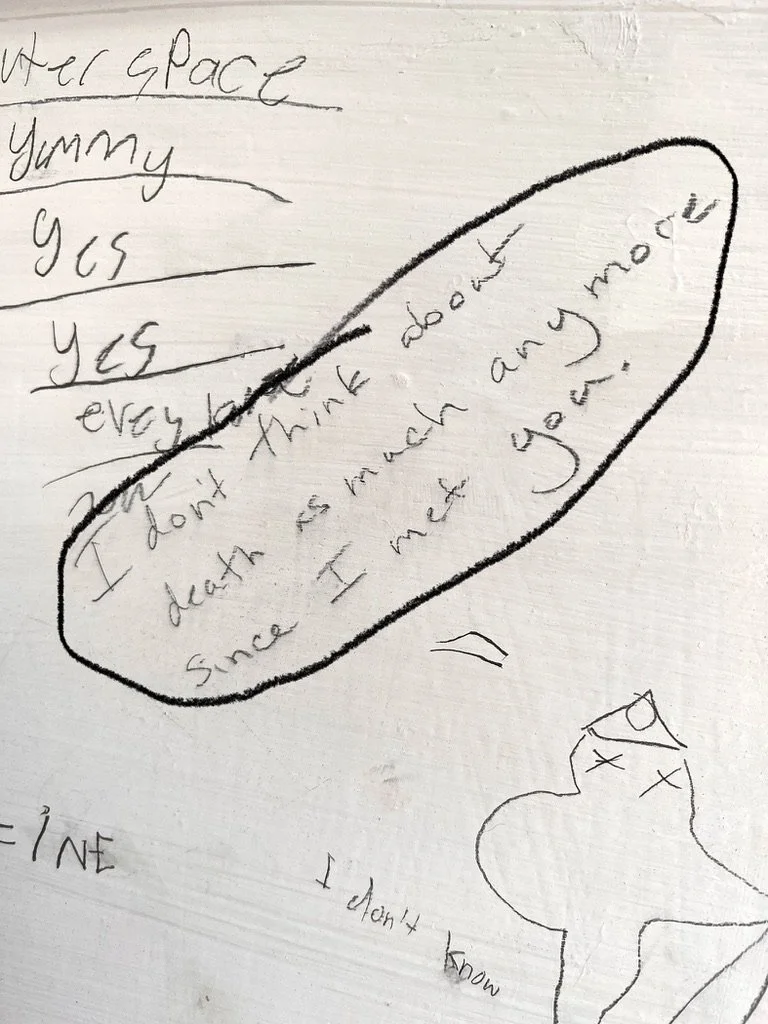 uter space
yummy
yes
yes
every
I don't think about
death as much any more
since I met you.
INE
I don't know